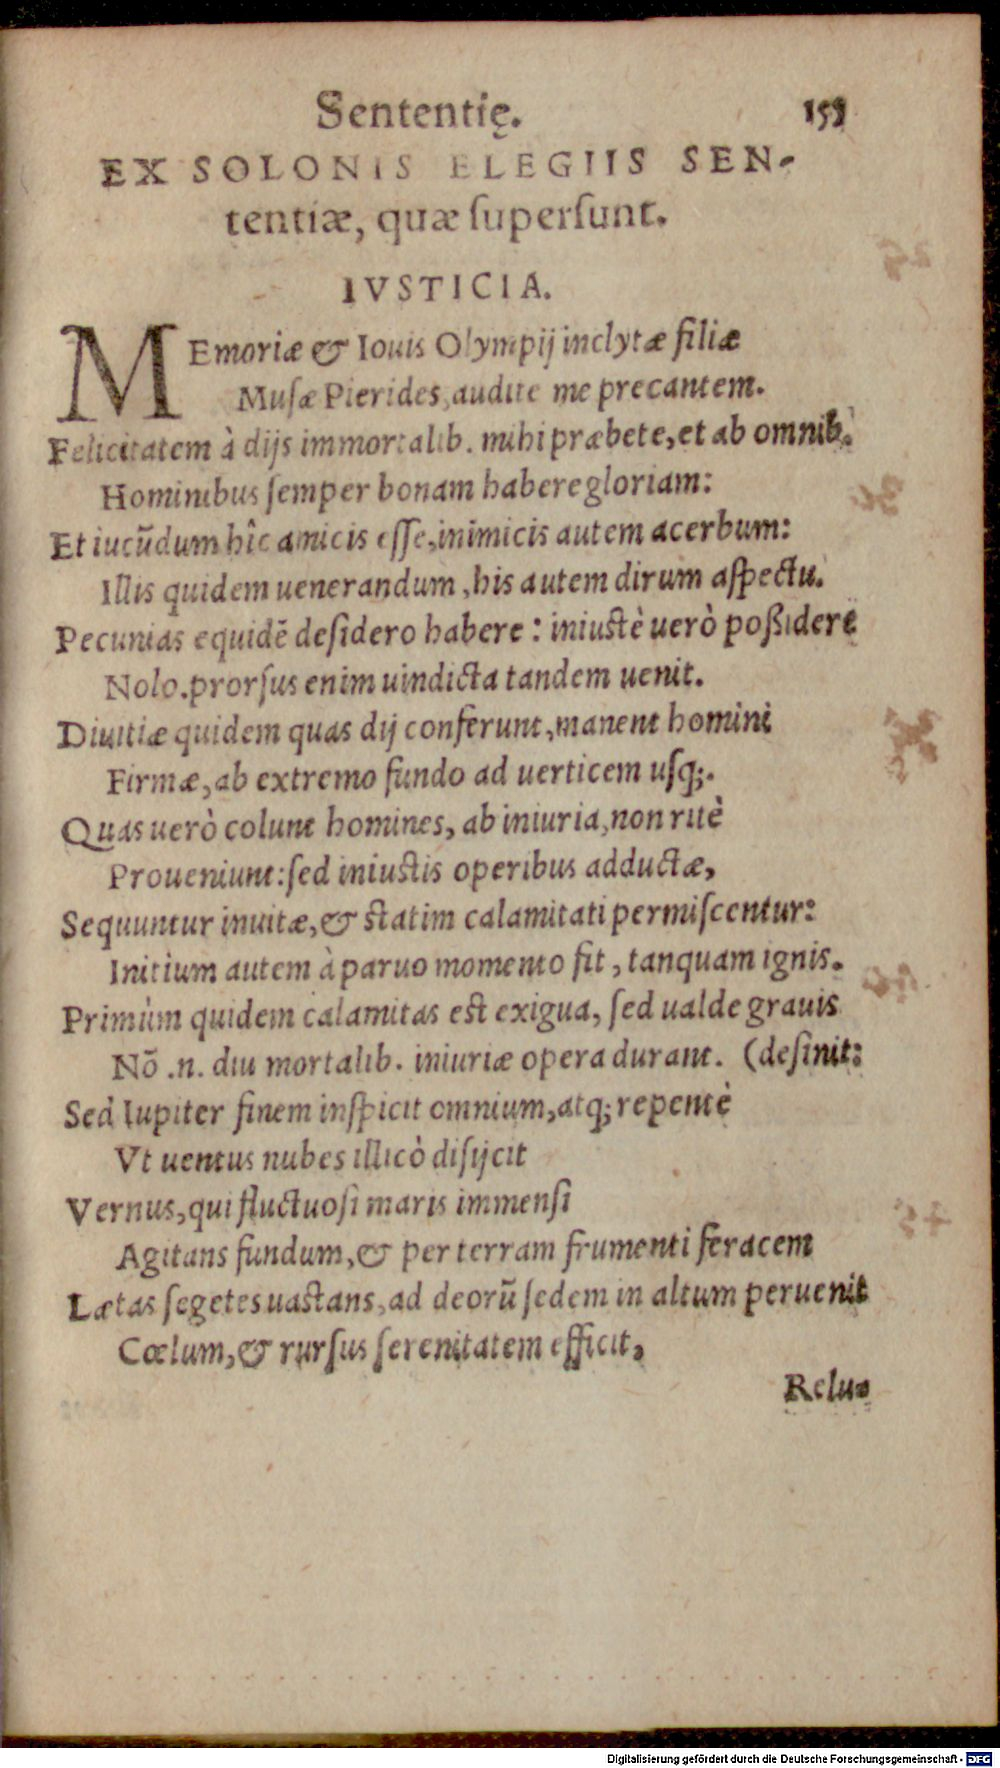 Sententię. 159
EX SOLONIS ELEGIIS SEN-
tentiæ, quæ ſuperſunt.
IVSTICIA.
MEmoriæ & Iouis Olympij inclytæ filiæ
Muſæ Pierides, audite me precantem.
Felicitatem à dijs immortalib. mihi præbete, et ab omnib.
Hominibus ſemper bonam habere gloriam:
Et iucũdum hîc amicis eſſe, inimicis autem acerbum:
Illis quidem uenerandum, his autem dirum aſpectu.
Pecunias equidẽ deſidero habere: iniuſtè uerò poßidere
Nolo. prorſus enim uindicta tandem uenit.
Diuitiæ quidem quas dij conferunt, manent homini
Firmæ, ab extremo fundo ad uerticem uſq;.
Quas uerò colunt homines, ab iniuria, non ritè
Proueniunt: ſed iniuſtis operibus adductæ,
Sequuntur inuitæ, & ſtatim calamitati permiſcentur:
Initium autem à paruo momento fit, tanquam ignis.
Primùm quidem calamitas eſt exigua, ſed ualde grauis
Nõ .n. diu mortalib. iniuriæ opera durant. (deſinit:
Sed Iupiter finem inſpicit omnium, atq; repentè
Vt uentus nubes illicò diſijcit
Vernus, qui fluctuoſi maris immenſi
Agitans fundum, & per terram frumenti feracem
Lætas ſegetes uaſtans, ad deorũ ſedem in altum peruenit
Cœlum, & rurſus ſerenitatem efficit.
Relu-
Digitalisierung gefördert durch die Deutsche Forschungsgemeinschaft - DFG